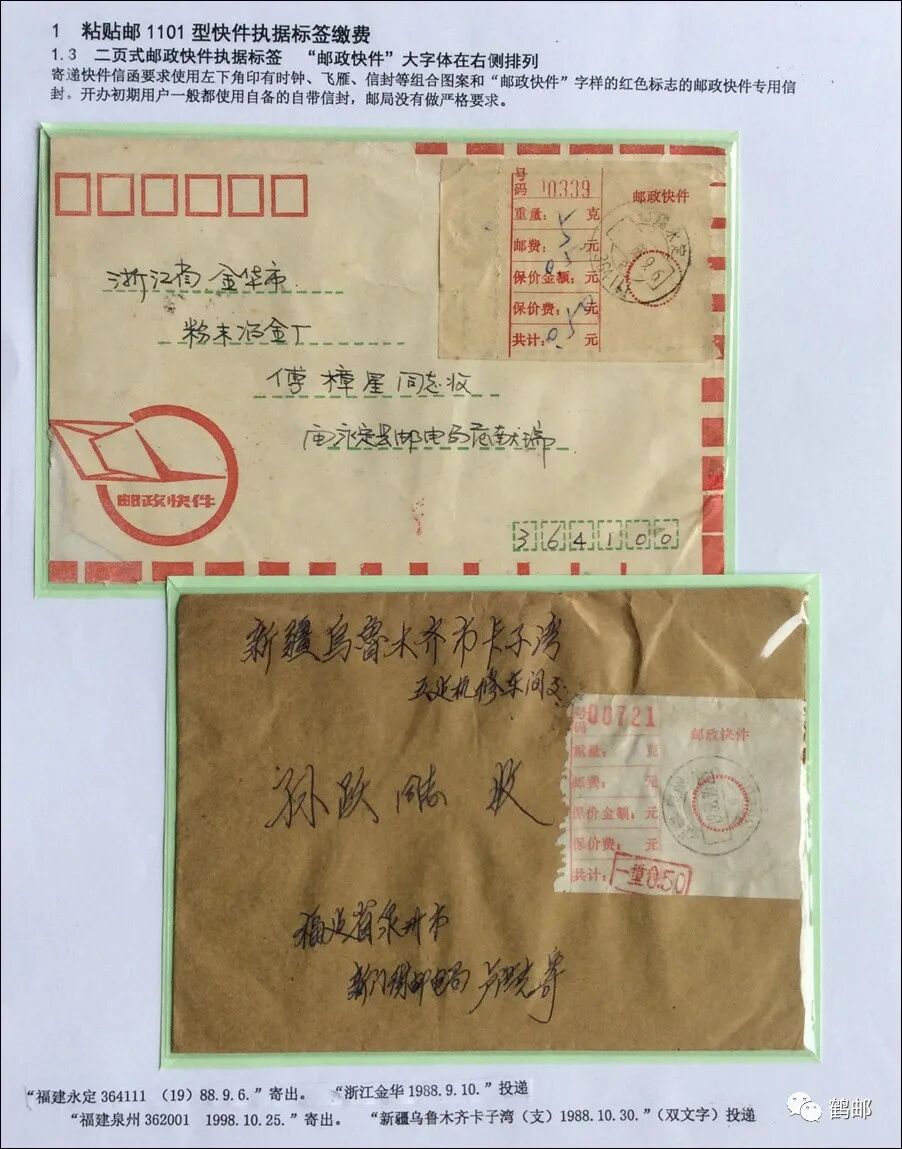 1 粘贴邮1101型快件执据标签缴费
1.3 二页式邮政快件执据标签 “邮政快件”大字体在右侧排列
寄递快件信函要求使用左下角印有时钟、飞雁、信封等组合图案和“邮政快件”字样的红色标志的邮政快件专用信
封。开办初期用户一般都使用自备的自带信封，邮局没有做严格要求。
号码 10339
邮政快件
重量： 5 克
邮费： 元
保价金额： 元
保价费： 元
共计： 0.50 元
浙江省金华市
粉末冶金厂
傅樟星同志收
由永定县邮电局范献瑞
邮政快件
364100
新疆乌鲁木齐市卡子湾
五处机修车间交
号码 00721
邮政快件
重量： 克
邮费： 元
保价金额： 元
保价费： 元
共计： 一重0.50
孙跃同志 收
福建省泉州市
新门街邮电局 寄
“福建永定 364111 （19）88.9.6.”寄出。 “浙江金华 1988.9.10.”投递
“福建泉州 362001 1998.10.25.”寄出。 “新疆乌鲁木齐卡子湾（支）1988.10.30.”（双文字）投递
鹤邮